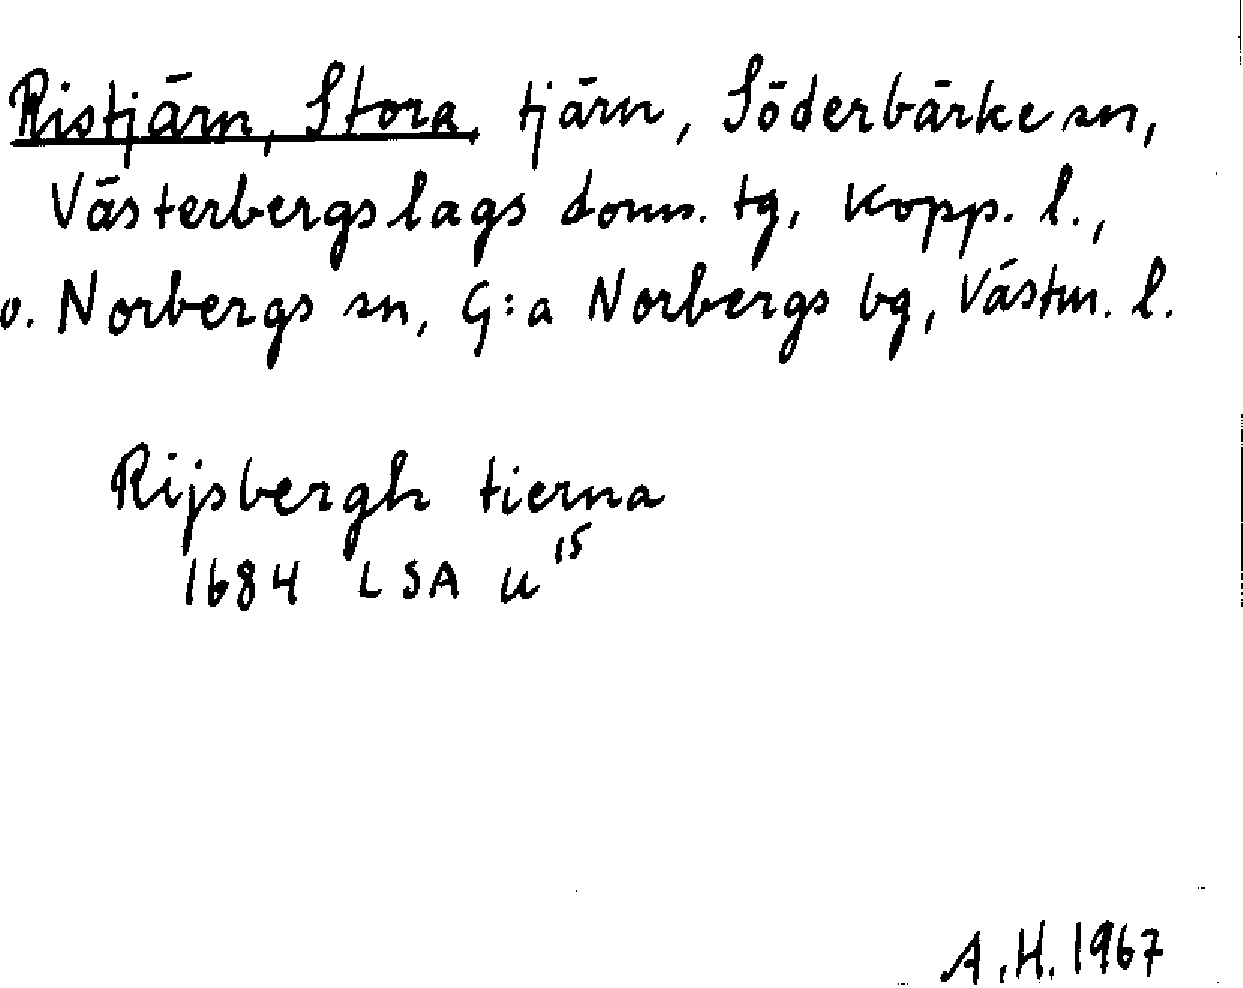 Ristjärn, Stora, tjärn, Söderbärke sn,
Västerbergslags doms. tg, Kopp. l.,
o. Norbergs sn, G:a Norbergs bg, Västm. l.
Rijsbergh tierna
1684 LSA U 15
A.H. 1967